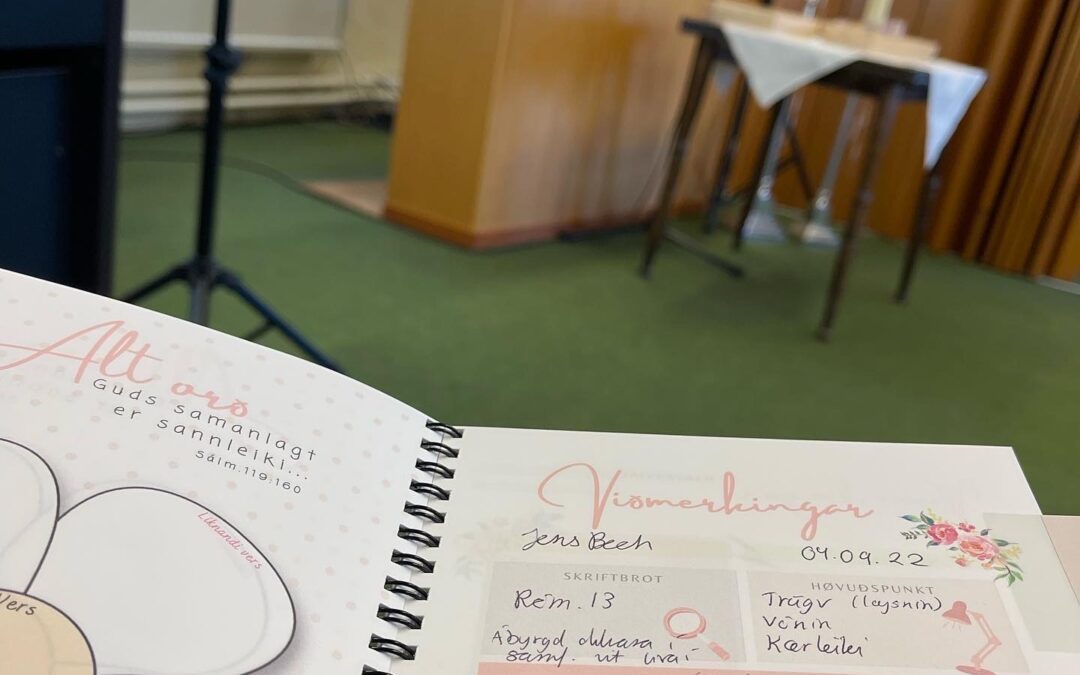 Alt orð
Guds samanlagt
er sannleiki...
Sálm.119:160
Líknandi vers
Vers
Viðmerkingar
Jens Beck
04.09.22
SKRIFTBROT
Róm. 13
Ábyrgd okkara í
samf. vit liva í
HØVUÐSPUNKT
Trúgv (loysnin)
Vónin
Kærleiki